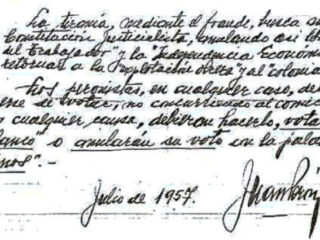 La tiranía, mediante el fraude, busca
Constitución Justicialista, anulando así
del trabajador" y la "Independencia Econom
retornar a la explotación obrera y al colonia
Los peronistas, en cualquier caso, de
de votar, no concurriendo al comic
cualquier causa, debieran hacerlo, vota
blanco" o anularán su voto con la pala
Julio de 1957.
Juan Perón